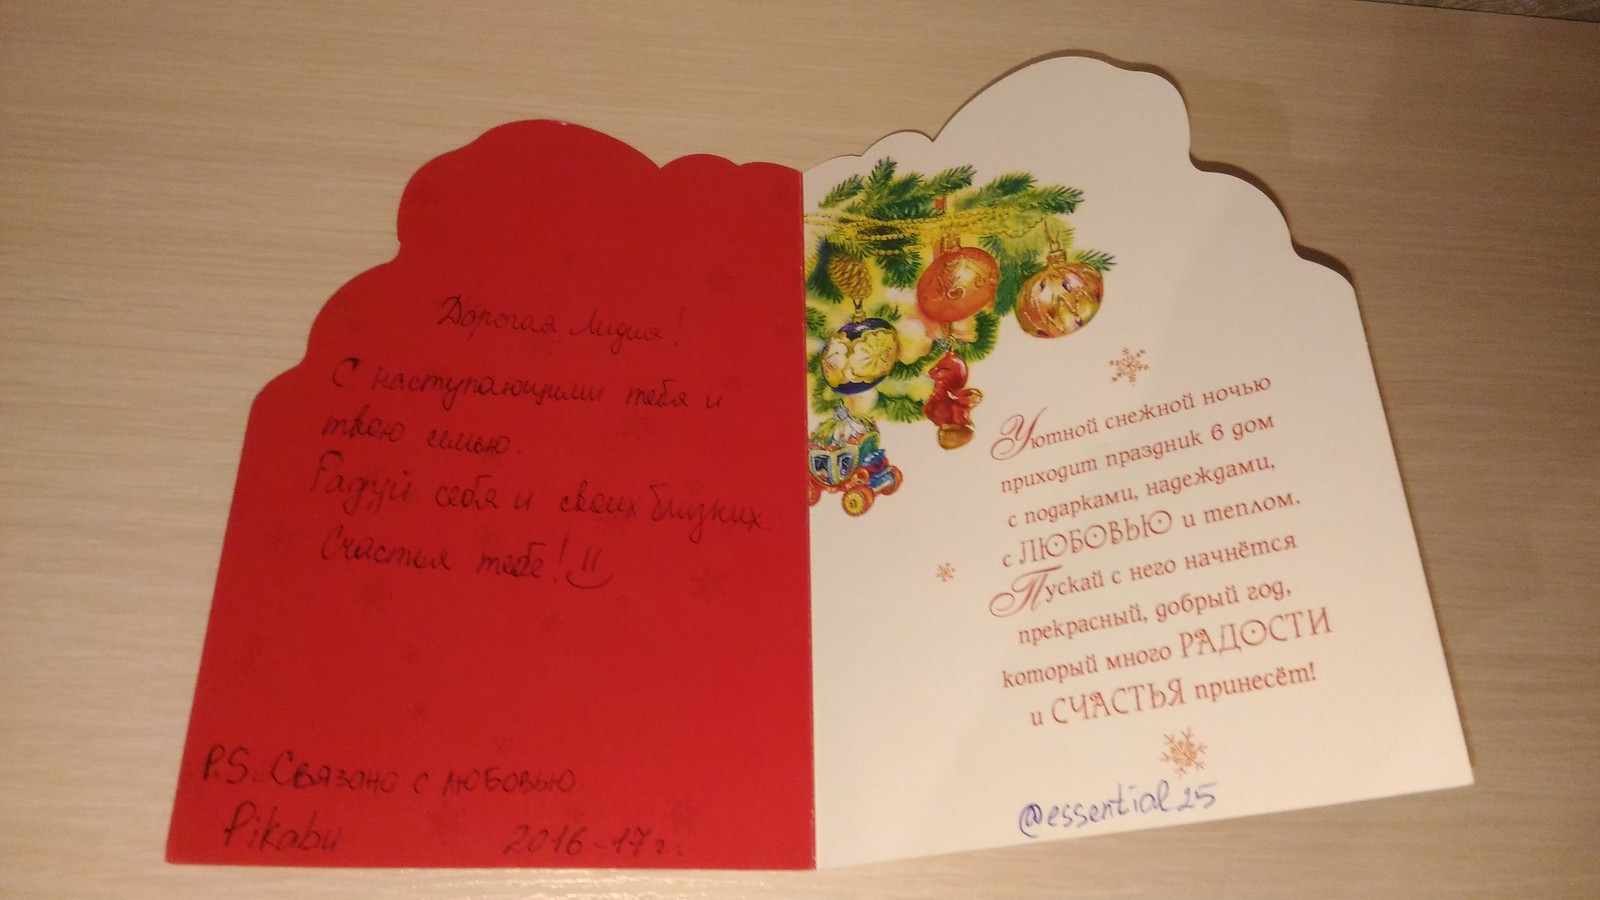 Дорогая Лидия!
С наступающими тебя и
твою семью.
Радуй себя и своих близких.
Счастья тебе!
P.S. Связано с любовью
Pikabu 2016-17г.
Уютной снежной ночью
приходит праздник в дом
с подарками, надеждами,
с ЛЮБОВЬЮ и теплом.
Пускай с него начнётся
прекрасный, добрый год,
который много РАДОСТИ
и СЧАСТЬЯ принесёт!
@essential25